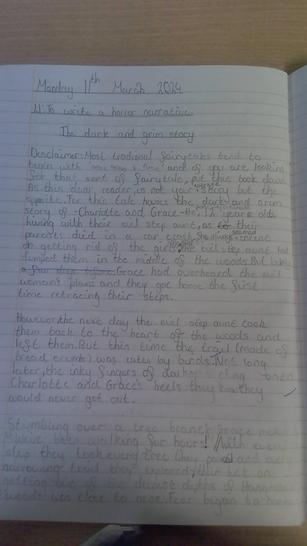 Monday 11th March 2024
LI: To write a horror narrative
The dark and grim story
Disclaimer: Most tradional fairytales tend to
begin with once upon a time and if you are looking
for that sort of fairytale, put this book down.
As this dear reader is not your story but the
opposite. For this tale houses the dark and grim
story of Charlotte and Grace 12 year olds
living with their evil step aunt, as their
parents died in a car crash. She always
on getting rid of the girls evil step aunt had
dumped them in the middle of the woods. But
a few days before Grace had overheard the evil
woman's plans and they got home the first
time retracing their steps.
However the next day the evil step aunt took
them back to the heart of the woods and
left them. But this time the trail (made of
bread crumbs) was eaten by birds. Not long
later, the inky fingers of
Charlotte and Grace's heels they knew they
would never get out.
Stumbling over a tree branch Grace
been walking for hours! With every
step they took every tree they passed and
narrowing trail they explored, their
getting out of the
woods was close to none. Fear began to